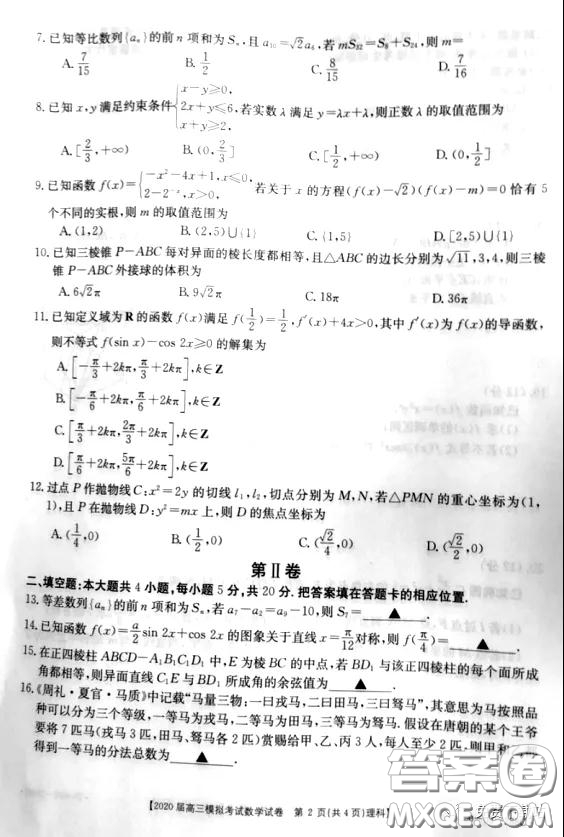 7. 已知等比数列{aₙ}的前 n 项和为 Sₙ，且 a₁₀=√2a₆，若 mS₃₂=S₈+S₂₄，则 m=
A. 7/15 B. 1/2 C. 8/15 D. 7/16
8. 已知 x，y 满足约束条件{x-y≥0, 2x+y≤6, x+y≥2, 若实数 λ 满足 y=λx+λ，则正数 λ 的取值范围为
A. [2/3，+∞) B. (0，2/3] C. [1/2，+∞) D. (0，1/2]
9. 已知函数 f(x)={ 若关于 x 的方程(f(x)-√2)(f(x)-m)=0 恰有 5
个不同的实根，则 m 的取值范围为
A. (1，2) B. (2，5)∪{1} C. {1，5} D. [2，5)∪{1}
10. 已知三棱锥 P-ABC 每对异面的棱长度都相等，且△ABC 的边长分别为√11，3，4，则三棱
锥 P-ABC 外接球的体积为
A. 6√2π B. 9√2π C. 18π D. 36π
11. 已知定义域为 R 的函数 f(x)满足 f(1/2)=1/2，f′(x)+4x>0，其中 f′(x)为 f(x)的导函数，
则不等式 f(sin x)-cos 2x≥0 的解集为
A. [-π/3+2kπ，π/3+2kπ]，k∈Z
B. [-π/6+2kπ，π/6+2kπ]，k∈Z
C. [π/3+2kπ，2π/3+2kπ]，k∈Z
D. [π/6+2kπ，5π/6+2kπ]，k∈Z
12. 过点 P 作抛物线 C：x²=2y 的切线 l₁，l₂，切点分别为 M，N，若△PMN 的重心坐标为(1，
1)，且 P 在抛物线 D：y²=mx 上，则 D 的焦点坐标为
A. (1/4，0) B. (1/2，0) C. (√2/4，0) D. (√2/2，0)
第Ⅱ卷
二、填空题：本大题共 4 小题，每小题 5 分，共 20 分. 把答案填在答题卡的相应位置.
13. 等差数列{aₙ}的前 n 项和为 Sₙ，若 a₇-a₂=a₉-10，则 S₇=▲.
14. 已知函数 f(x)=a/2 sin 2x+cos 2x 的图象关于直线 x=π/12对称，则 f(π/4)=▲.
15. 在正四棱柱 ABCD-A₁B₁C₁D₁ 中，E 为棱 BC 的中点，若 BD₁ 与该正四棱柱的每个面所成
角都相等，则异面直线 C₁E 与 BD₁ 所成角的余弦值为▲.
16.《周礼·夏官·马质》中记载“马量三物：一曰戎马，二曰田马，三曰驽马”，其意思为马按照品
种可以分为三个等级，一等马为戎马，二等马为田马，三等马为驽马. 假设在唐朝的某个王爷
要将 7 匹马(戎马 3 匹，田马、驽马各 2 匹)赏赐给甲、乙、丙 3 人，每人至少 2 匹，则甲和
得到一等马的分法总数为▲.
【2020 届高三模拟考试数学试卷 第 2 页(共 4 页)理科】